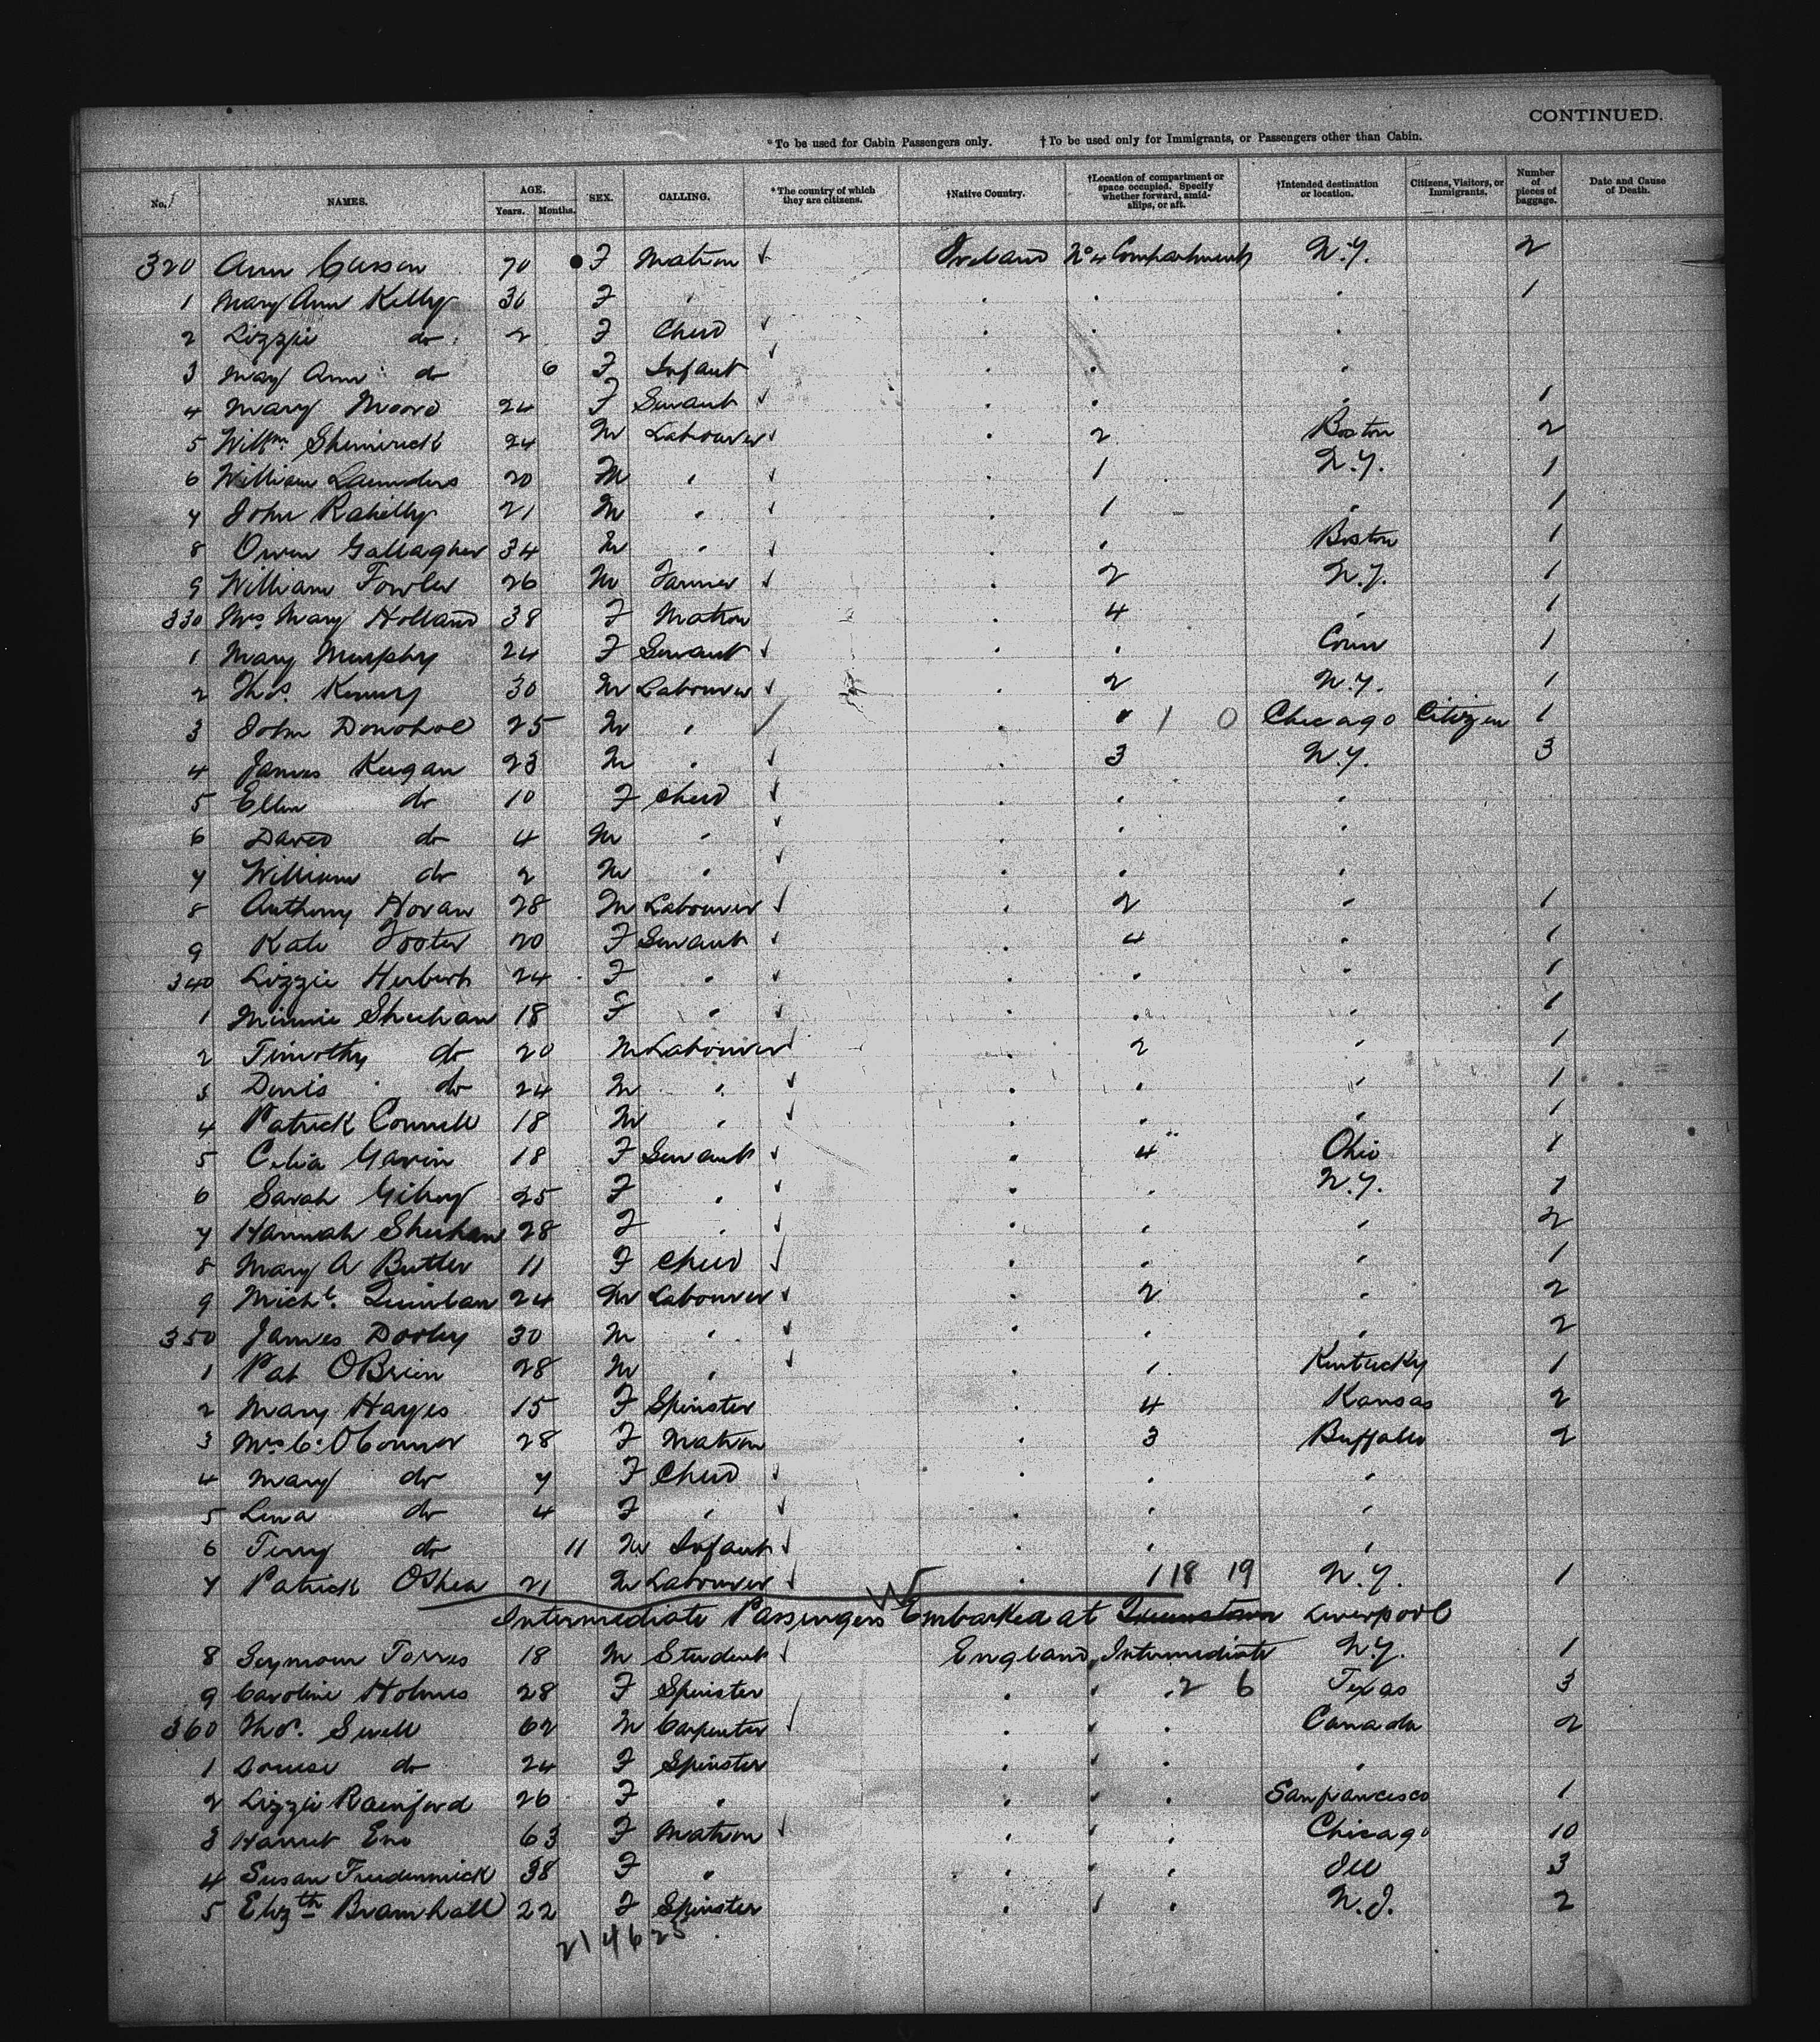 CONTINUED.
*To be used for Cabin Passengers only. †To be used only for Immigrants, or Passengers other than Cabin.
No. NAMES. AGE. Years. Months. SEX. CALLING. *The country of which they are citizens. †Native Country. †Location of compartment or space occupied. Specify whether forward, amidships, or aft. †Intended destination or location. Citizens, Visitors, or Immigrants. Number of pieces of baggage. Date and Cause of Death.
320 Ann 70 F Matron Ireland No 4 Compartment N.Y. 2
1 Mary Ann Kelly 30 F " " " " 1
2 Lizzie do 2 F Child " " "
3 Mary Ann do 6 F Infant " " "
4 Mary Moore 24 F Servant " " " 1
5 Willm 24 M Labourer " 2 Boston 2
6 William Saunders 20 M " " 1 N.Y. 1
7 John Rahilly 21 M " " 1 " 1
8 Owen Gallagher 34 M " " " Boston 1
9 William Fowler 26 M Farmer " 2 N.Y. 1
330 Mrs Mary Holland 38 F Matron " 4 " 1
1 Mary Murphy 24 F Servant " " Conn 1
2 Thos. 30 M Labourer " 2 N.Y. 1
3 John Donohoe 25 M " " " 1 0 Chicago Citizen 1
4 James Keegan 23 M " " 3 N.Y. 3
5 Ellen do 10 F Child " " "
6 David do 4 M " " " "
7 William do 2 M " " " "
8 Anthony Horan 28 M Labourer " 2 " 1
9 Kate Foster 20 F Servant " 4 " 1
340 Lizzie Herbert 24 F " " " " 1
1 Minnie Sheehan 18 F " " " " 1
2 Timothy do 20 M Labourer " 2 " 1
3 Denis do 24 M " " " " 1
4 Patrick Connell 18 M " " " " 1
5 Celia Gavin 18 F Servant " 4 Ohio 1
6 Sarah Gilroy 25 F " " " N.Y. 1
7 Hannah Sheehan 28 F " " " " 2
8 Mary A Butler 11 F Child " " " 1
9 Michl. Quinlan 24 M Labourer " 2 " 2
350 James Dooley 30 M " " " " 2
1 Pat OBrien 28 M " " 1 Kentucky 1
2 Mary Hayes 15 F Spinster 4 Kansas 2
3 Mrs C. OConnor 28 F Matron " 3 Buffalo 2
4 Mary do 7 F Child " " "
5 Lena do 4 F " " " "
6 Terry do 11 M Infant " " "
7 Patrick OShea 21 M Labourer " 1 18 19 N.Y. 1
Intermediate Passengers Embarked at Queenstown Liverpool
8 Seymour Torres 18 M Student England Intermediate N.Y. 1
9 Caroline Holmes 28 F Spinster " " " 2 6 Texas 3
360 Thos. Sewell 62 M Carpenter " " " Canada 2
1 Louise do 24 F Spinster " " " "
2 Lizzie Rainford 26 F " " " " Sanfrancisco 1
3 Harriet Eno 63 F Matron " " " Chicago 10
4 Susan 38 F " " " " Ill 3
5 Elizth Bramhall 22 F Spinster " " " N.J. 2
21 4 6 25